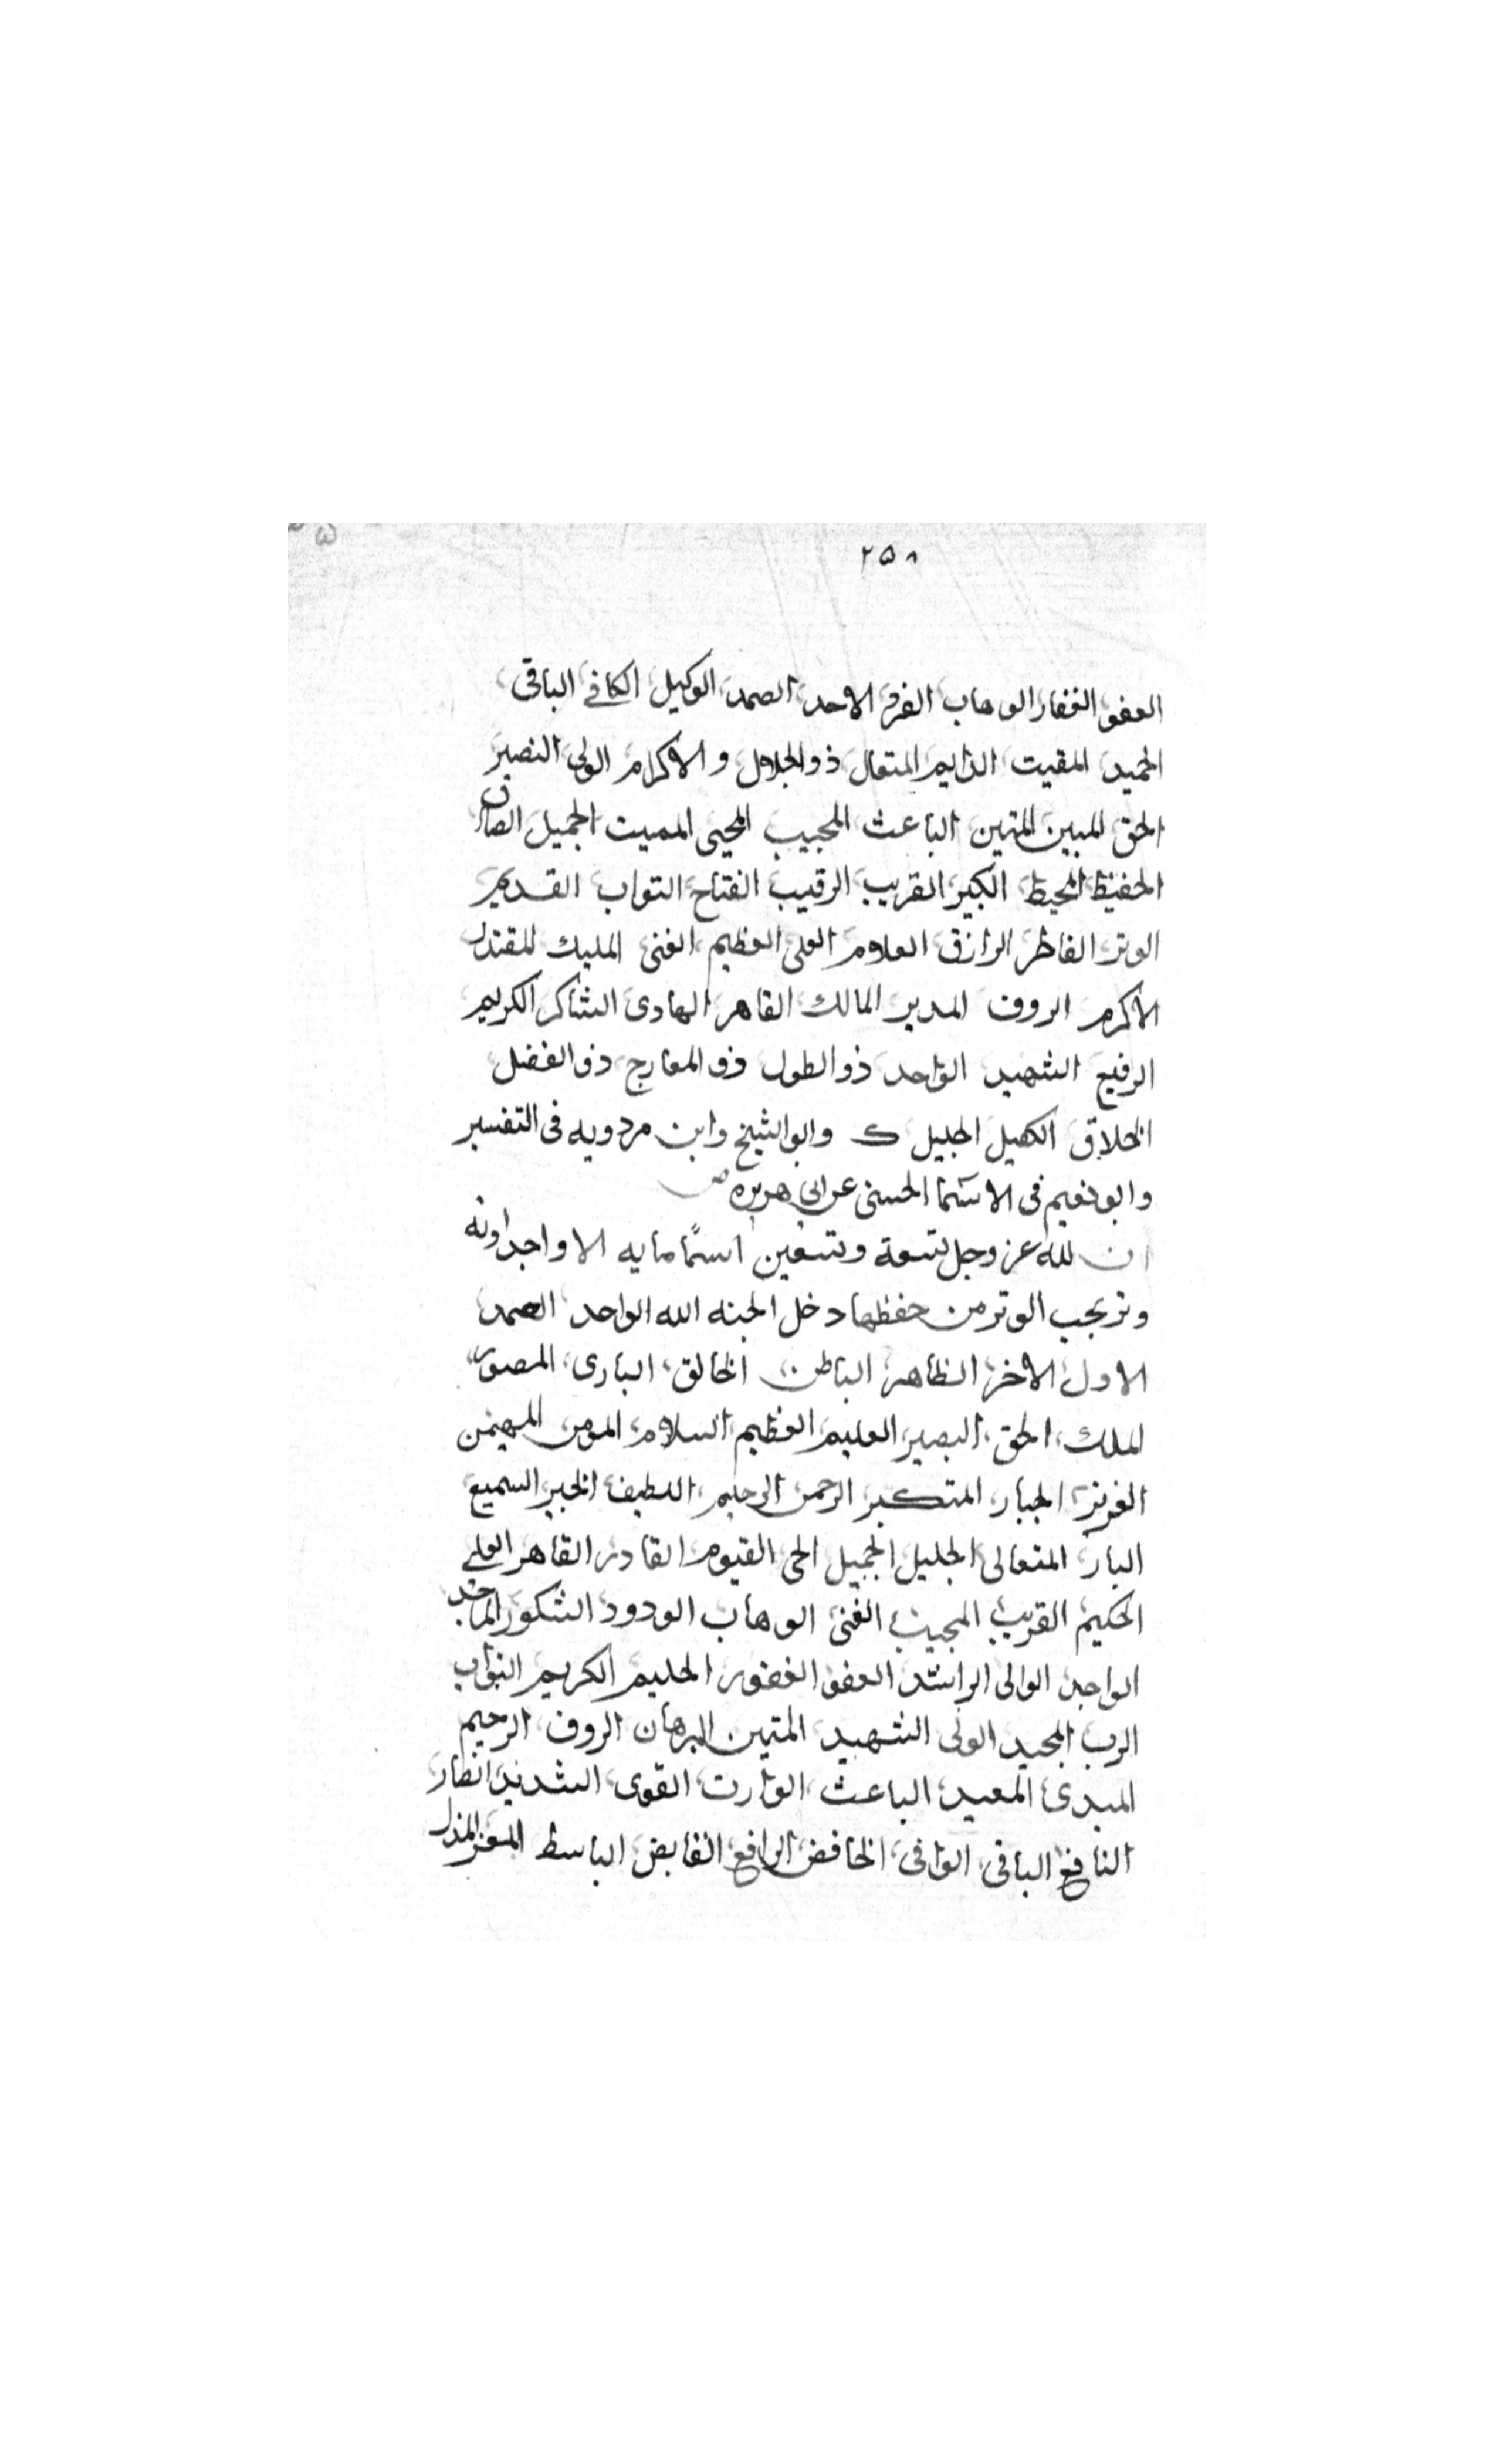 ٢٥٨
العفو الغفار الوهاب الفرد الاحد الصمد الوكيل الكافي الباقى
الحميد المقيت الدايم المتعال ذو الجلال و الاكرام الولى النصير
الحق المبين المنين الباعث المجيب المحيى المميت الجميل الصادق
الحفيظ المحيط الكبير القريب الرقيب الفتاح التواب القديم
الوتر الفاطر الرازق العلام العلى العظيم الغنى المليك المقتدر
الاكرم الروف المدبر المالك القاهر الهادى الشاكر الكريم
الرفيع الشهيد الواحد ذو الطول ذو المعارج ذو الفضل
الخلاق الكفيل الجليل ك وابو الشيخ وابن مردويه فى التفسير
وابو نعيم فى الاسما الحسنى عن ابى هريره
ان لله عز وجل تسعة وتسعين اسمًا مايه الا واحدا انه
وتر يحب الوتر من حفظها دخل الجنه الله الواحد الصمد
الاول الاخر الظاهر الباطن الخالق البارى المصور
الملك الحق البصير العليم العظيم السلام المومن المهيمن
العزيز الجبار المتكبر الرحمن الرحيم اللطيف الخبير السميع
البار المتعالى الجليل الجميل الحى القيوم القادر القاهر العلى
الحكيم القريب المجيب الغنى الوهاب الودود الشكور الماجد
الواجد الوالى الراشد العفو الغفور الحليم الكريم التواب
الرب المجيد الولى الشهيد المتين البرهان الروف الرحيم
المبدى المعيد الباعث الوارث القوى الشديد الضار
النافع الباقى الوافى الخافض الرافع القابض الباسط المعز المذل